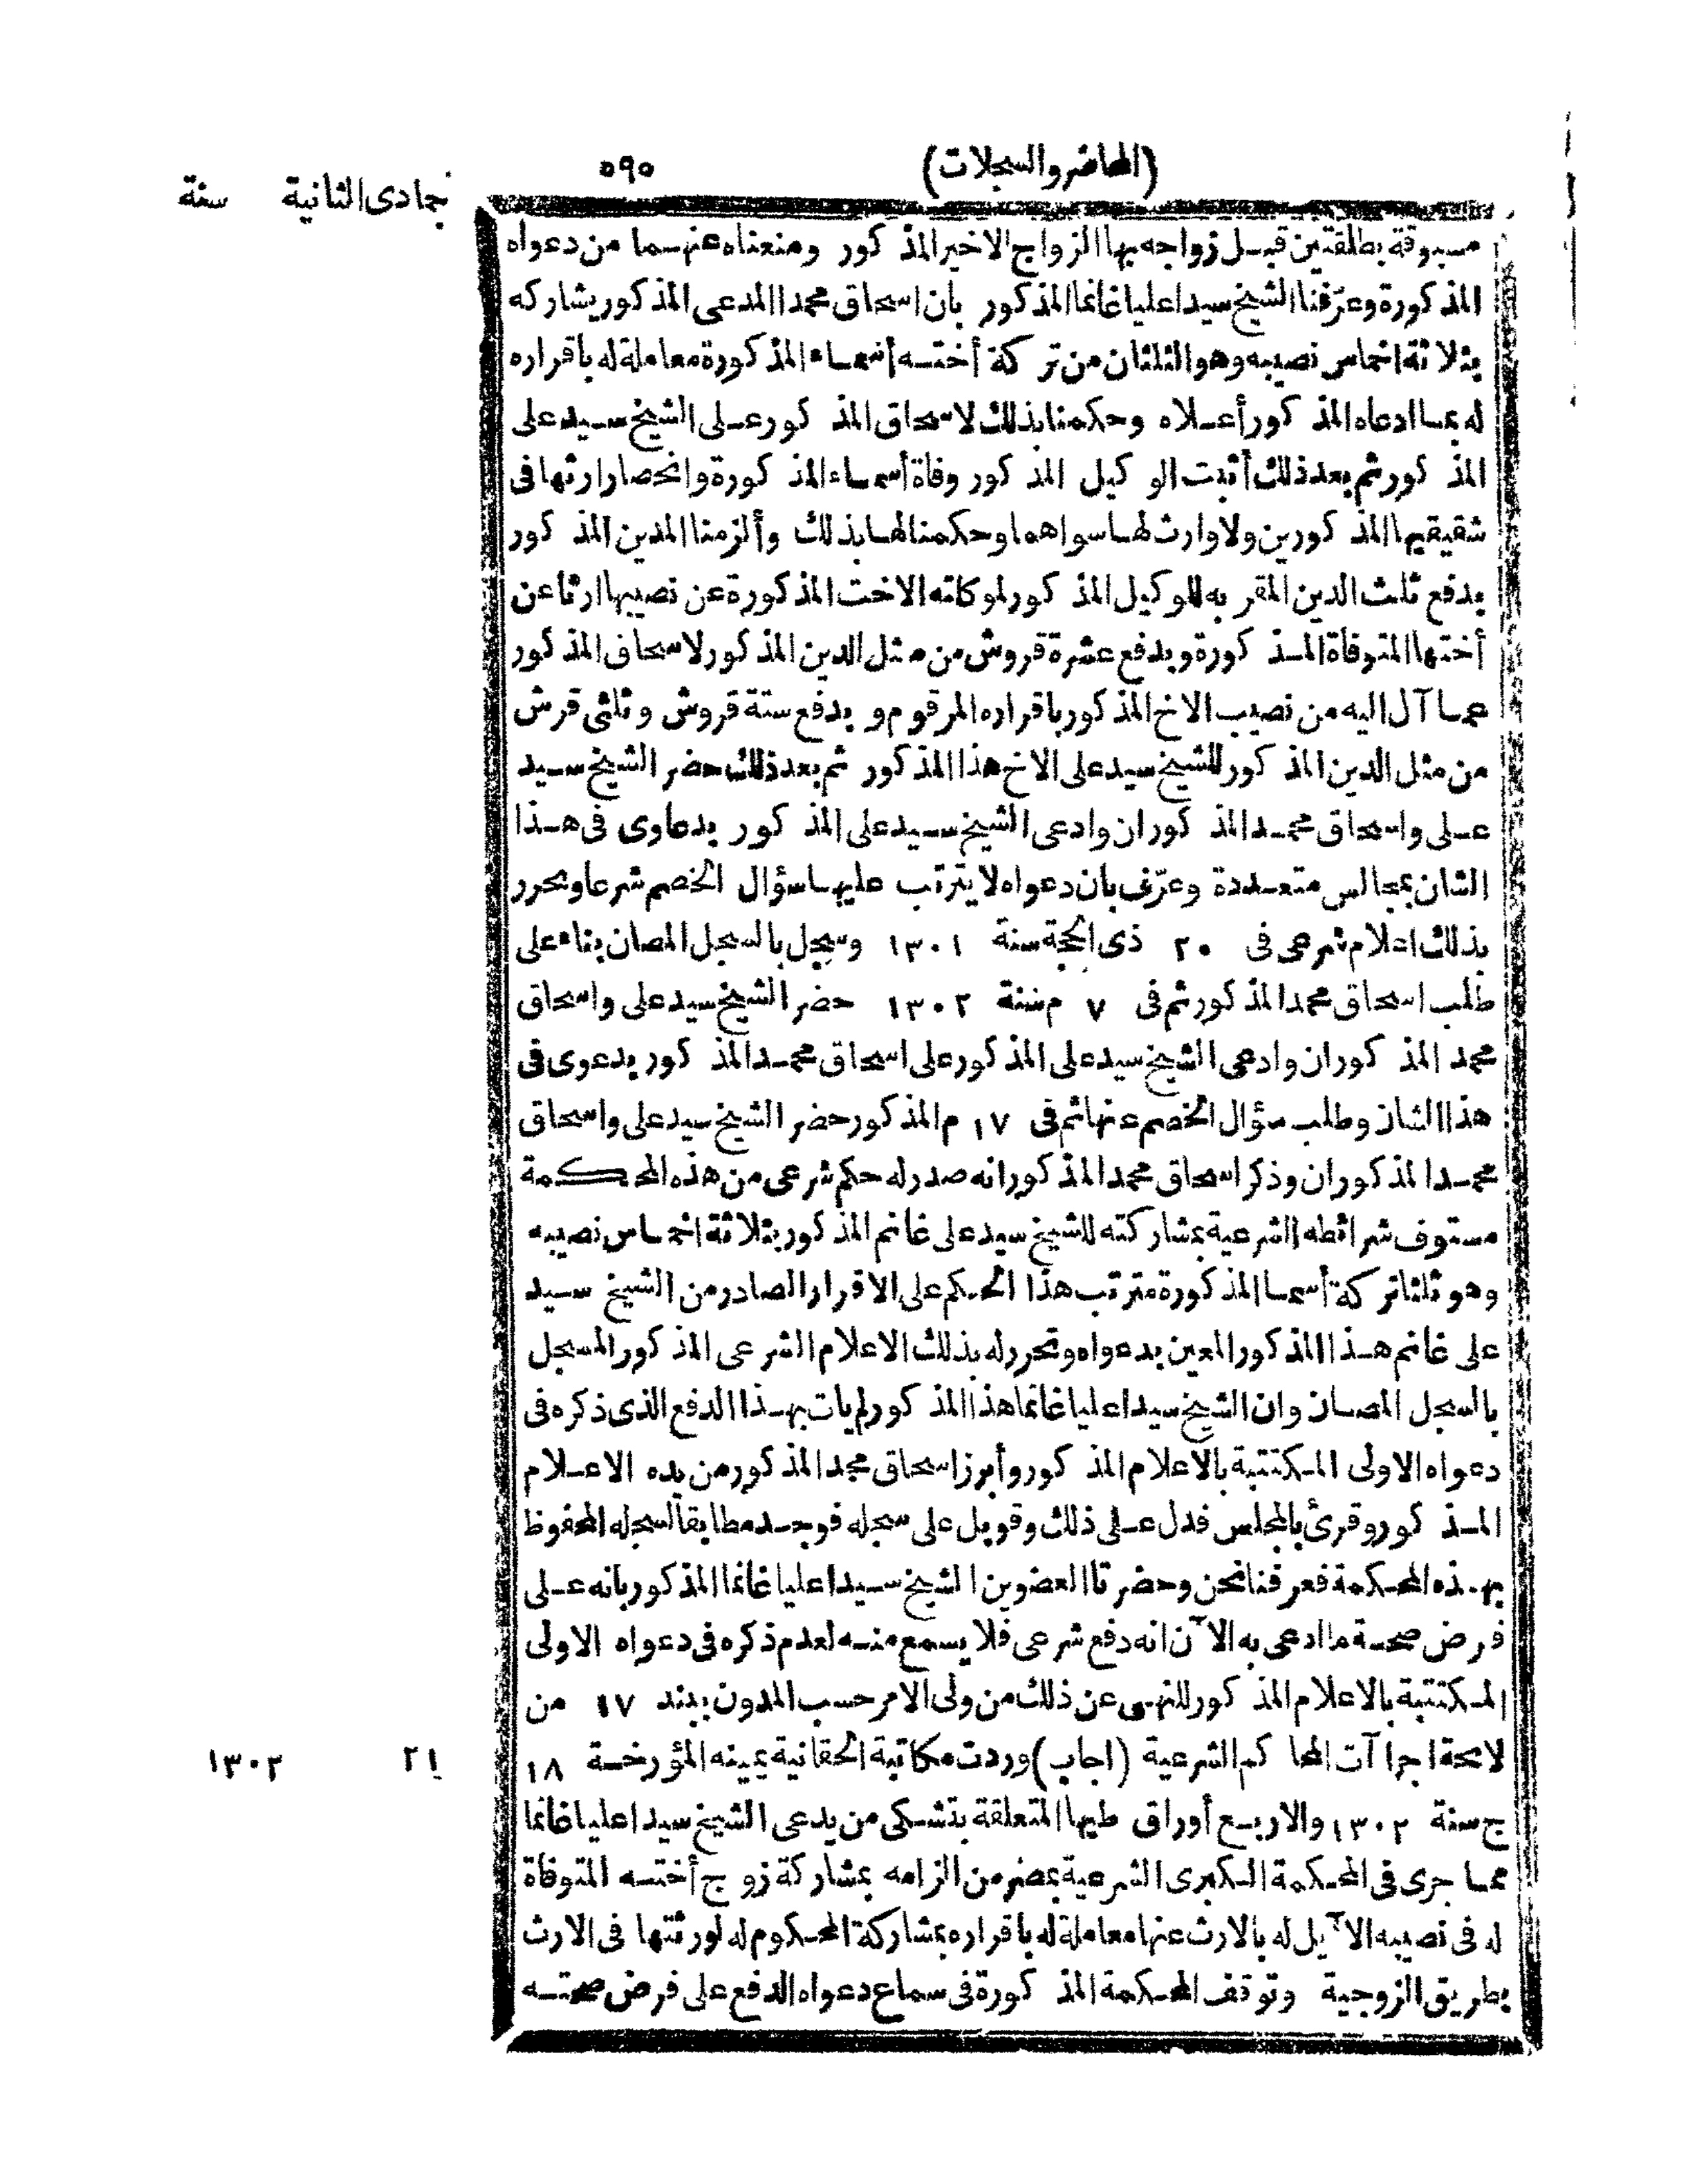 (المحاضر والسجلات) ٥٩٥
جمادى الثانية سنة
مسبوقة بطلقتين قبل زواجه بها الزواج الاخير المذكور ومنعناه عنهما من دعواه
المذكورة وعرّفنا الشيخ سيدا عليا غانما المذكور بان اسحاق محمدا المدعى المذكور يشاركه
بثلاثة اخماس نصيبه وهو الثلثان من تركة أخته أسماء المذكورة معاملة له باقراره
له بما ادعاه المذكور أعلاه وحكمنا بذلك لاسحاق المذكور على الشيخ سيد على
المذكور ثم بعد ذلك أثبت الوكيل المذكور وفاة أسماء المذكورة وانحصار ارثها فى
شقيقيها المذكورين ولا وارث لها سواهما وحكمنا لها بذلك وألزمنا المدين المذكور
بدفع ثلث الدين المقر به للوكيل المذكور لموكلته الاخت المذكورة عن نصيبها ارثا عن
أختها المتوفاة المذكورة وبدفع عشرة قروش من مثل الدين المذكور لاسحاق المذكور
عما آل اليه من نصيب الاخ المذكور باقراره المرقوم و بدفع ستة قروش وثلثى قرش
من مثل الدين المذكور للشيخ سيد على الاخ هذا المذكور ثم بعد ذلك حضر الشيخ سيد
على واسحاق محمد المذكوران وادعى الشيخ سيد على المذكور بدعاوى فى هذا
الشان بمجالس متعددة وعرّف بان دعواه لا يترتب عليها سؤال الخصم شرعا وتحرر
بذلك اعلام شرعى فى ٢٠ ذى الحجة سنة ١٣٠١ وسجل بالسجل المصان بناء على
طلب اسحاق محمد المذكور ثم فى ٧ م سنة ١٣٠٢ حضر الشيخ سيد على واسحاق
محمد المذكوران وادعى الشيخ سيد على المذكور على اسحاق محمد المذكور بدعوى فى
هذا الشان وطلب سؤال الخصم عنها ثم فى ١٧ م المذكور حضر الشيخ سيد على واسحاق
محمد المذكوران وذكر اسحاق محمد المذكور انه صدر له حكم شرعى من هذه المحكمة
مستوف شرائطه الشرعية بمشاركته للشيخ سيد على غانم المذكور بثلاثة اخماس نصيبه
وهو ثلثا تركة أسما المذكورة مترتب هذا الحكم على الاقرار الصادر من الشيخ سيد
على غانم هذا المذكور المعين بدعواه وتحرر له بذلك الاعلام الشرعى المذكور المسجل
بالسجل المصان وان الشيخ سيدا عليا غانما هذا المذكور لم يات بهذا الدفع الذى ذكره فى
دعواه الاولى المكتتبة بالاعلام المذكور وأبرز اسحاق محمد المذكور من يده الاعلام
المذكور وقرئ بالمجلس فدل على ذلك وقوبل على سجله فوجد مطابقا لسجله المحفوظ
بهذه المحكمة فعرفنا نحن وحضرتا العضوين الشيخ سيدا عليا غانما المذكور بانه على
فرض صحة ما ادعى به الآن انه دفع شرعى فلا يسمع منه لعدم ذكره فى دعواه الاولى
المكتتبة بالاعلام المذكور للنهى عن ذلك من ولى الامر حسب المدون ببند ١٧ من
لائحة اجراآت المحاكم الشرعية (اجاب) وردت مكاتبة الحقانية يمينه المؤرخة ١٨
٢١ ١٣٠٢
ج سنة ١٣٠٢ والاربع أوراق طيها المتعلقة بتشكى من يدعى الشيخ سيدا عليا غانما
مما جرى فى المحكمة الكبرى الشرعية بمصر من الزامه بمشاركة زوج أخته المتوفاة
له فى نصيبه الآيل له بالارث عنها معاملة له باقراره بمشاركة المحكوم له لورثتها فى الارث
بطريق الزوجية وتوقف المحكمة المذكورة فى سماع دعواه الدفع على فرض صحته